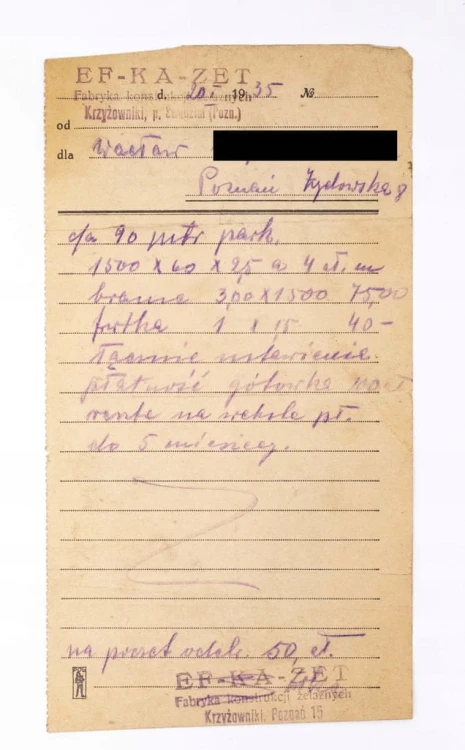 EF-KA-ZET
Fabryka konstrukcji żelaznych
d. 20 I 1935 №
Krzyżowniki, p. (Pozn.)
od
dla Wacław
Poznań Żydowska 8
ca 90 mtr park.
1500 x 60 x 25 a 4 zł. m
brama 3,00 x 1500 75,00
furtka 1 x 15 40-
Łącznie ustawienie.
płatność gótówka
na weksle pł.
do 5 miesięcy.
na poczet 50, zł.
EF-KA-ZET
Fabryka konstrukcji żelaznych
Krzyżowniki, Poznań 15